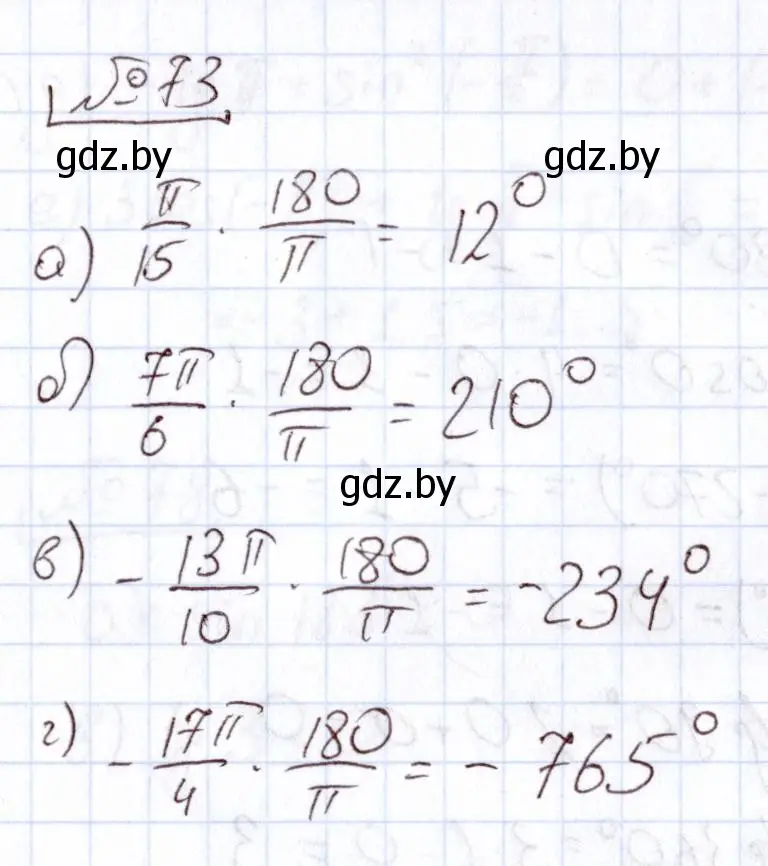 № 73.
gdz.by gdz.by
а) π/15 · 180/π = 12°
б) 7π/6 · 180/π = 210°
gdz.by
в) - 13π/10 · 180/π = -234°
г) - 17π/4 · 180/π = - 765°